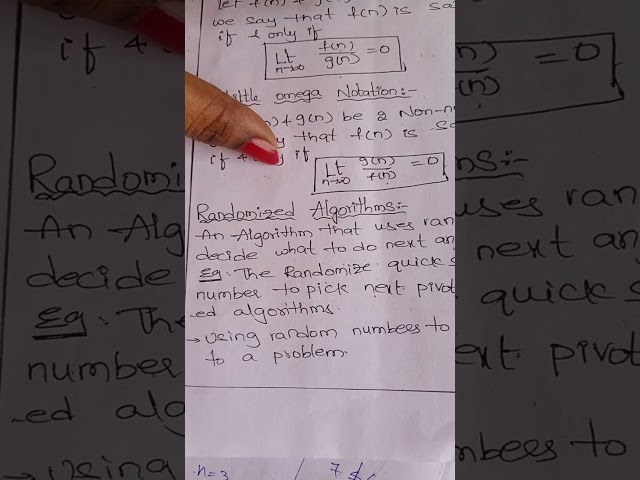 let f(n) &
we say that f(n) is
if & only if
Lt n→∞ f(n)/g(n) = 0
Little omega Notation:-
n) & g(n) be 2 Non-n
that f(n) is
if
Lt n→∞ g(n)/f(n) = 0
Randomized Algorithms:-
An Algorithm that uses ran
decide what to do next an
Eg: The Randomize quick s
number to pick next pivot
ed algorithms.
→ using random numbees to
to a problem.
n=3 7